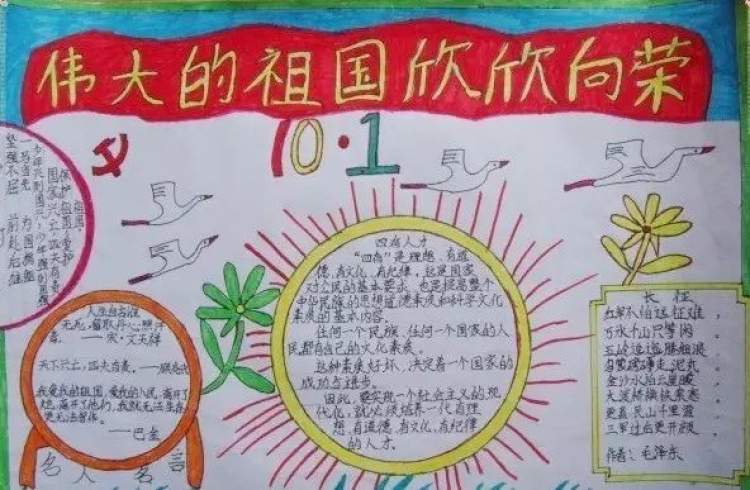 伟大的祖国欣欣向荣
10·1
国家兴亡,匹夫有责
少年兴则国兴,少年强则国强
一马当先 为国捐躯
坚强不屈 前赴后继
人生自古谁
无死,留取丹心照汗
青。——宋·文天祥
天下兴亡,匹夫有责。——顾炎武
我爱我的祖国,爱我的人民,离开了
她,离开了他们,我就无法生存,
更无法写作。
——巴金
名人名言
四有人才
"四有"是理想、有道
德、有文化、有纪律,这是国家
对公民的基本要求,也是提高整个
中华民族的思想道德素质和科学文化
素质的基本内容。
任何一个民族、任何一个国家的人
民都有自己的文化素质。
这种素质好坏、决定着一个国家的
成功与进步。
因此,要实现一个社会主义的现
代化,就必须培养一代有理
想、有道德、有文化、有纪律
的人才。
长征
红军不怕远征难,
万水千山只等闲。
五岭逶迤腾细浪,
乌蒙磅礴走泥丸。
金沙水拍云崖暖,
大渡桥横铁索寒。
更喜岷山千里雪,
三军过后更开颜。
作者:毛泽东